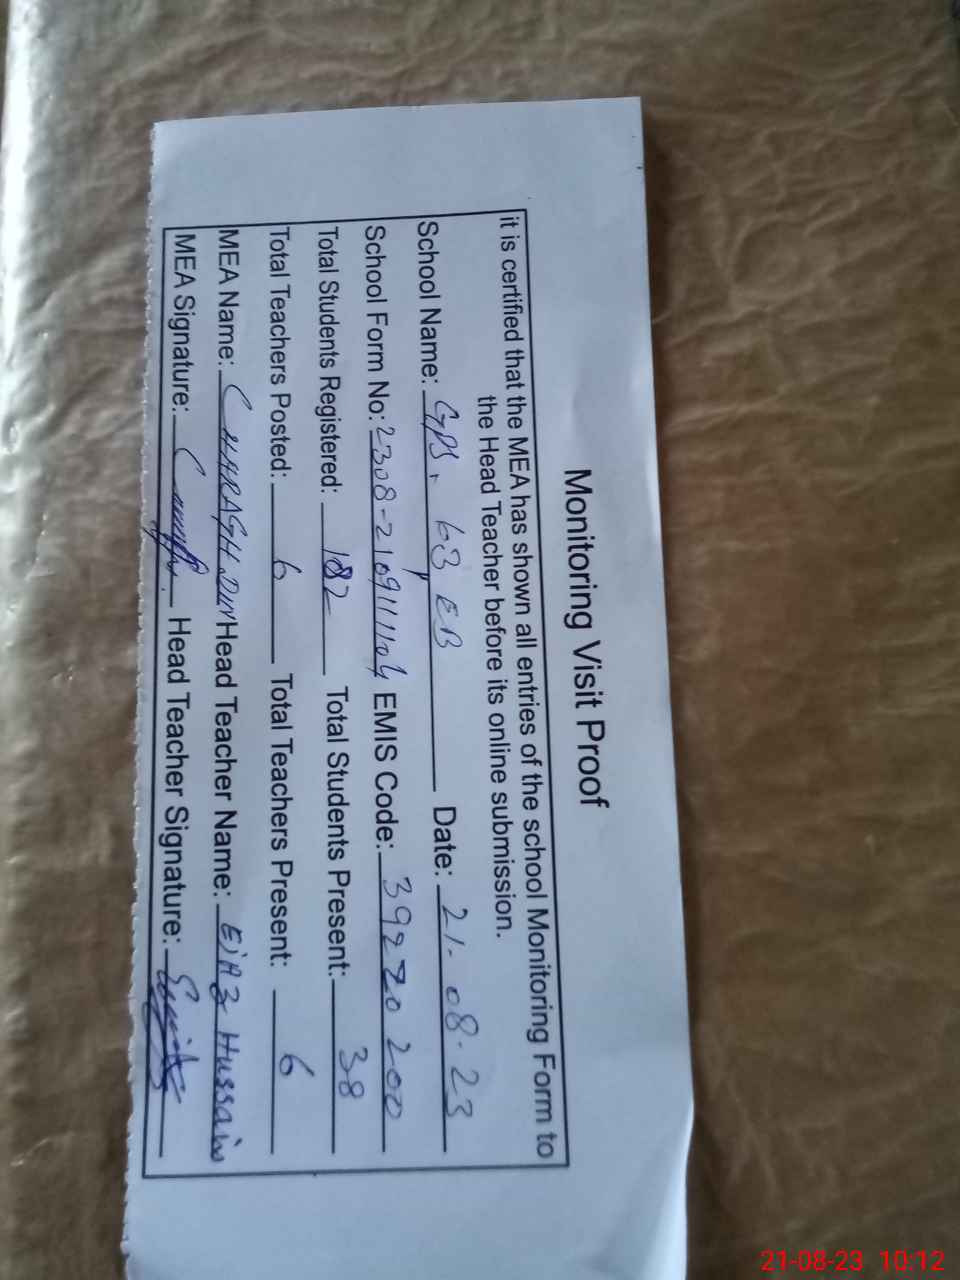 Monitoring Visit Proof
it is certified that the MEA has shown all entries of the school Monitoring Form to
the Head Teacher before its online submission.
School Name: GPS, 63 EB Date: 21-08-23
School Form No: 2308-210911104 EMIS Code: 39220200
Total Students Registered: 182 Total Students Present: 38
Total Teachers Posted: 6 Total Teachers Present: 6
MEA Name: Head Teacher Name: EiAz Hussain
MEA Signature: Head Teacher Signature:
21-08-23 10:12